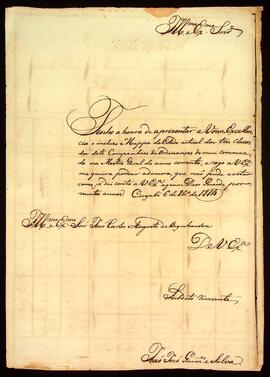 Illmo. e Exmo. Senr.
Tenho a honra de aprezentar a Vossa Excellen
cia o incluzo Mappa do Estado actual das tres classes
das sete Companhias de Ordenanças do meu comman
do na Mostra Geral do anno corrente, e rogo a V. Exa.
me queira perdoar a demora, que não pude evitar
como já dei conta a V. Exa. a quem Deos Guarde por
muitos annos. Cuyabá 6 de de 1814
Illmo. e Exmo. Snr. João Carlos Augusto de Oeynhausen
De V. Exa.
Subdito reverente
José e Silva